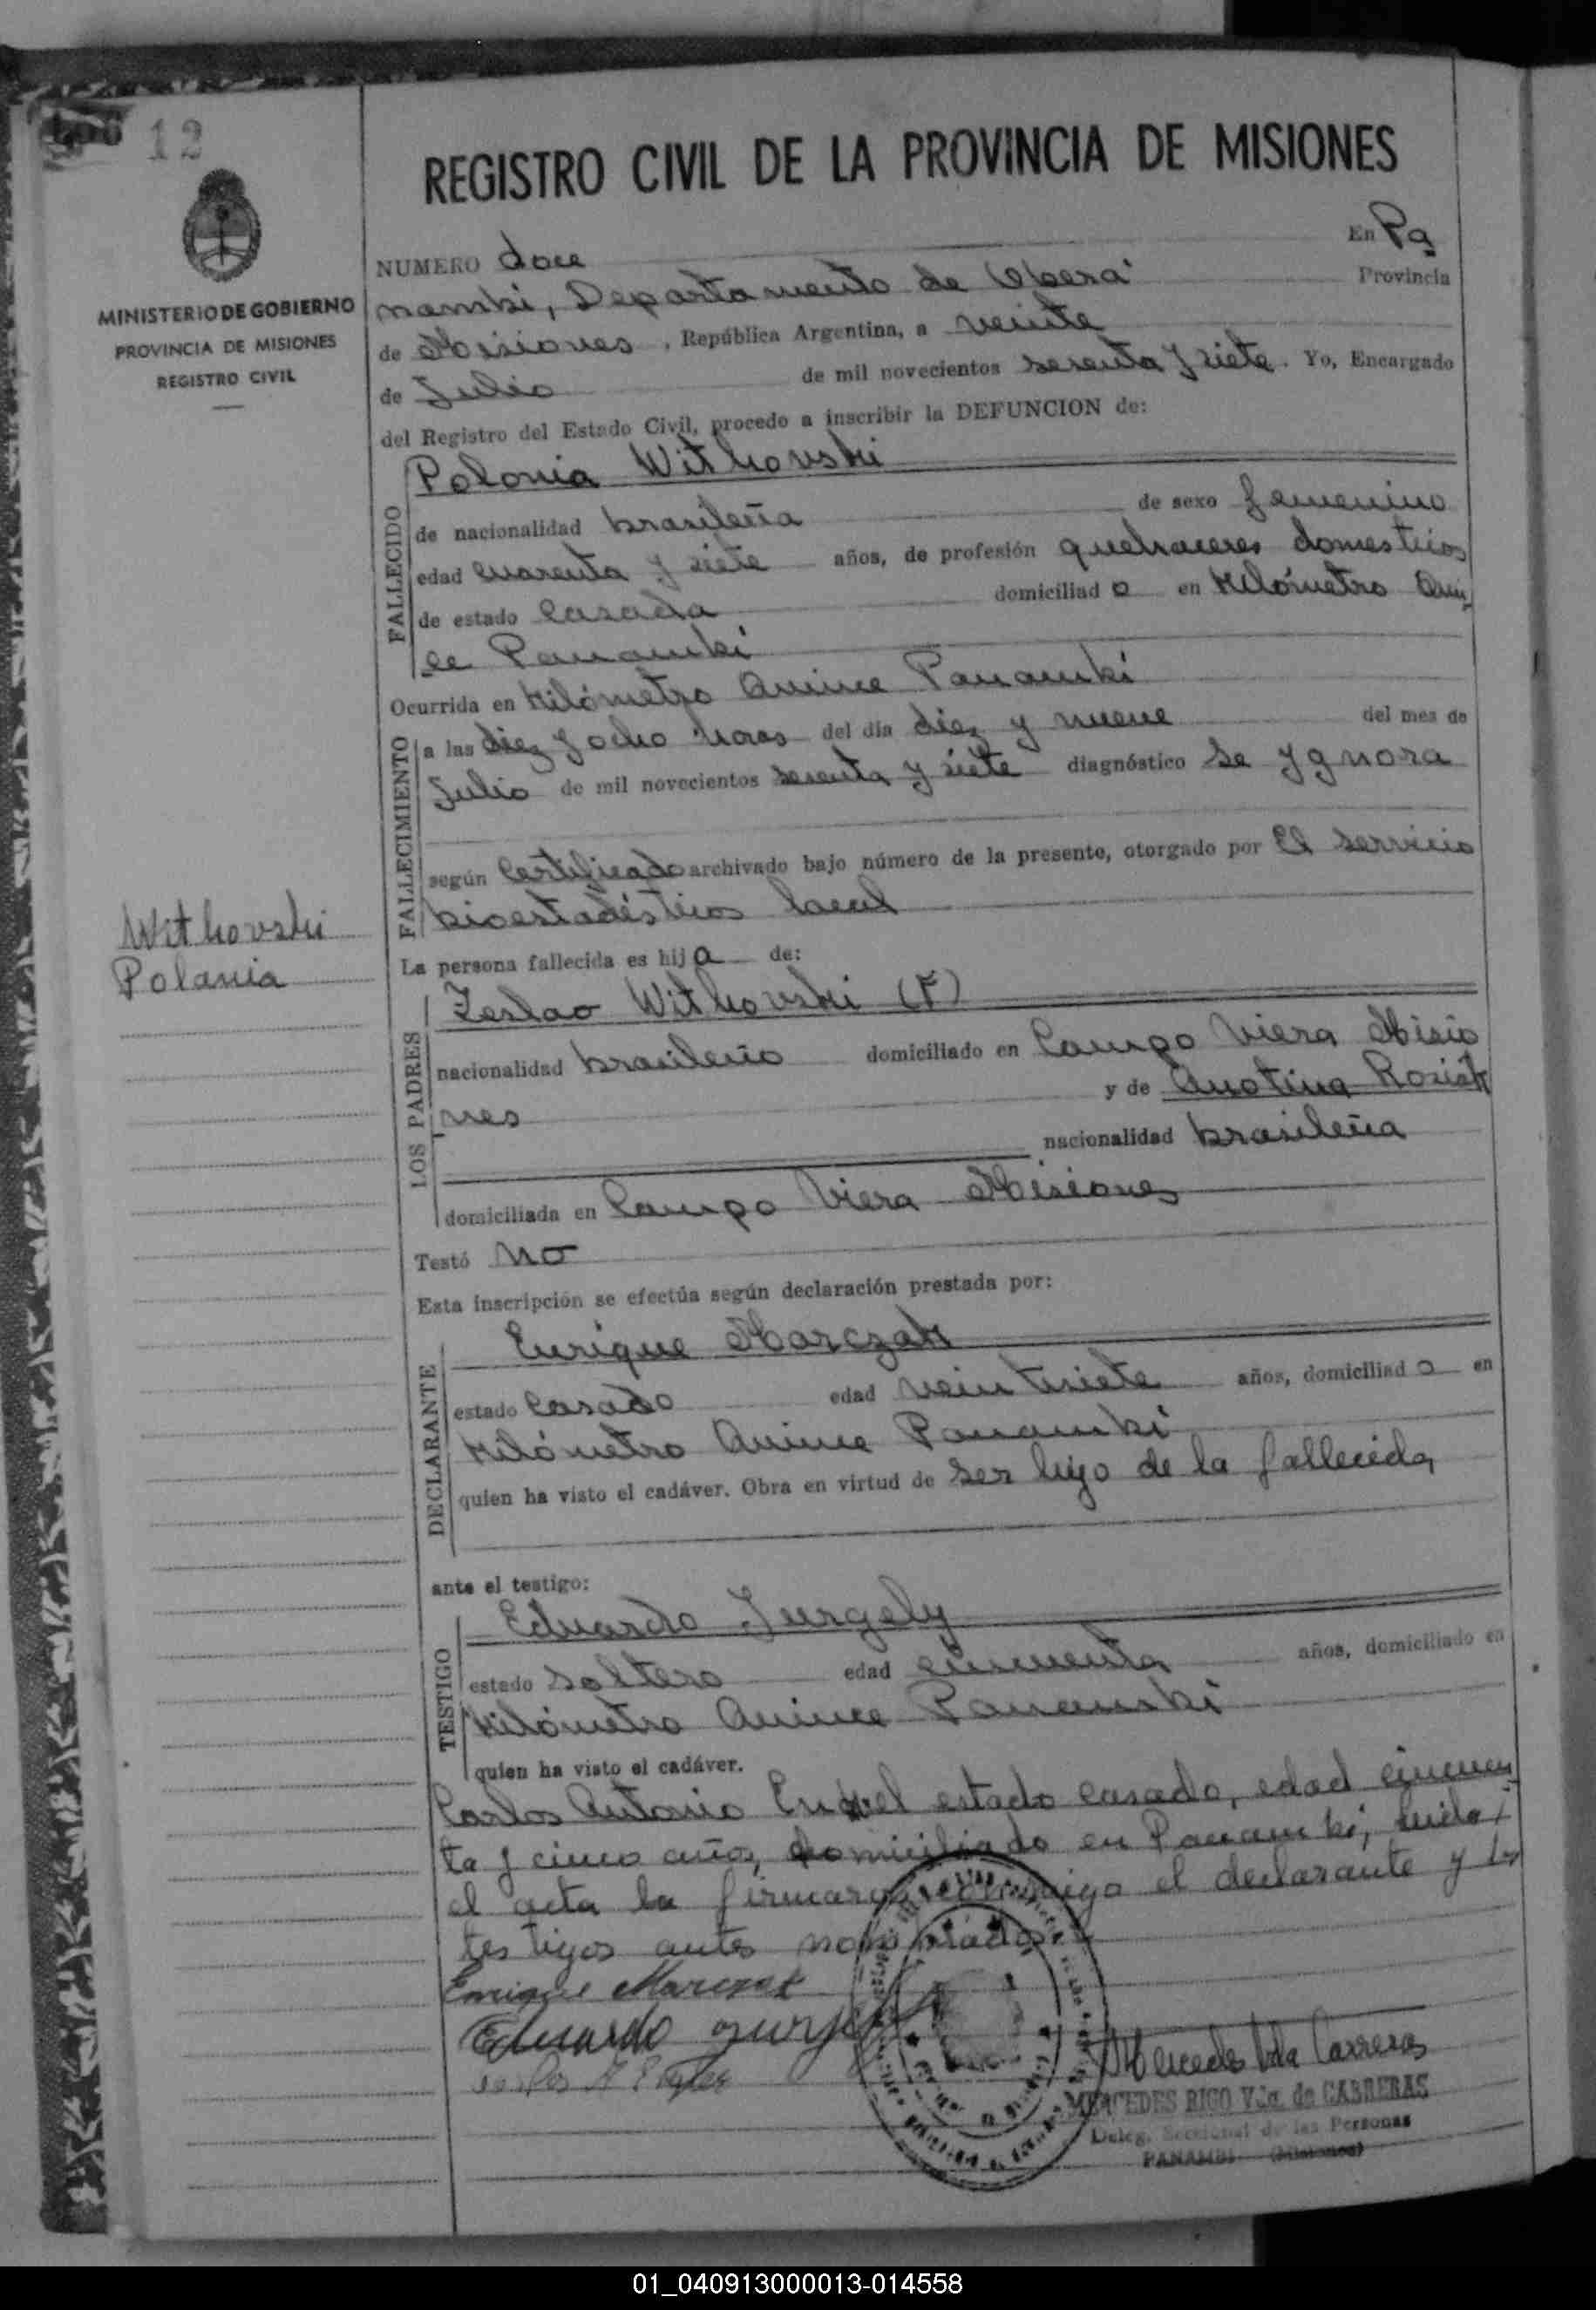 12
MINISTERIO DE GOBIERNO
PROVINCIA DE MISIONES
REGISTRO CIVIL
Withovski
Polania
REGISTRO CIVIL DE LA PROVINCIA DE MISIONES
NUMERO doce En Pa
nambi, Departamento de Oberá Provincia
de Misiones, República Argentina, a veinte
de Julio de mil novecientos sesenta y siete. Yo, Encargado
del Registro del Estado Civil, procedo a inscribir la DEFUNCION de:
FALLECIDO
Polonia Withovski
de nacionalidad brasileña de sexo femenino
edad cuarenta y siete años, de profesión quehaceres domesticos
de estado casada domiciliado en Kilómetro Quin
ce Panambi
Ocurrida en Kilómetro Quince Panambi
FALLECIMIENTO
a las diez y ocho horas del día diez y nueve del mes de
Julio de mil novecientos sesenta y siete diagnóstico se ygnora
según Certificado archivado bajo número de la presente, otorgado por El servicio
bioestadísticos local
La persona fallecida es hija de:
LOS PADRES
Zeslao Withovski (F)
nacionalidad brasileño domiciliado en Campo Viera Misio
nes y de Anotina Rosiak
nacionalidad brasileña
domiciliada en Campo Viera Misiones
Testó no
Esta inscripción se efectúa según declaración prestada por:
DECLARANTE
Enrique Marczak
estado Casado edad veintisiete años, domiciliado en
Kilómetro Quince Panambi
quien ha visto el cadáver. Obra en virtud de ser hijo de la fallecida
ante el testigo:
TESTIGO
Eduardo Jurgely
estado soltero edad cincuenta años, domiciliado en
Kilómetro Quince Panambi
quien ha visto el cadáver.
Carlos Antonio estado casado, edad cincuen
ta y cinco años, domiciliado en Panambi, leida
el acta la firmaron conmigo el declarante y los
testigos antes nombrados.
Enrique Marczak
Eduardo
Mercedes Vda Carreras
MERCEDES RIGO Vda. de CABRERAS
Deleg. Seccional de las Personas
PANAMBI (Misiones)
01_040913000013-014558